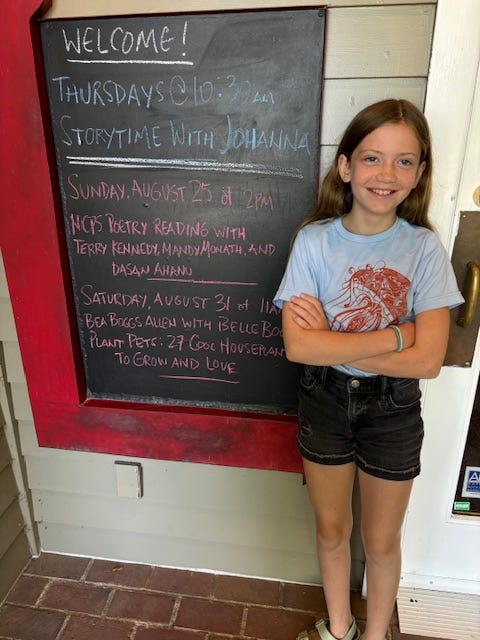 WELCOME!
THURSDAYS @ 10:30 AM
STORYTIME WITH JOHANNA
SUNDAY, AUGUST 25 at 2PM
NCPS POETRY READING WITH
TERRY KENNEDY, MANDY MONATH, AND
DASAN AHANU
SATURDAY, AUGUST 31 at 11A
BEA BOGGS ALLEN WITH BELLE BO
PLANT PETS: 27 COOL HOUSEPLAN
TO GROW AND LOVE